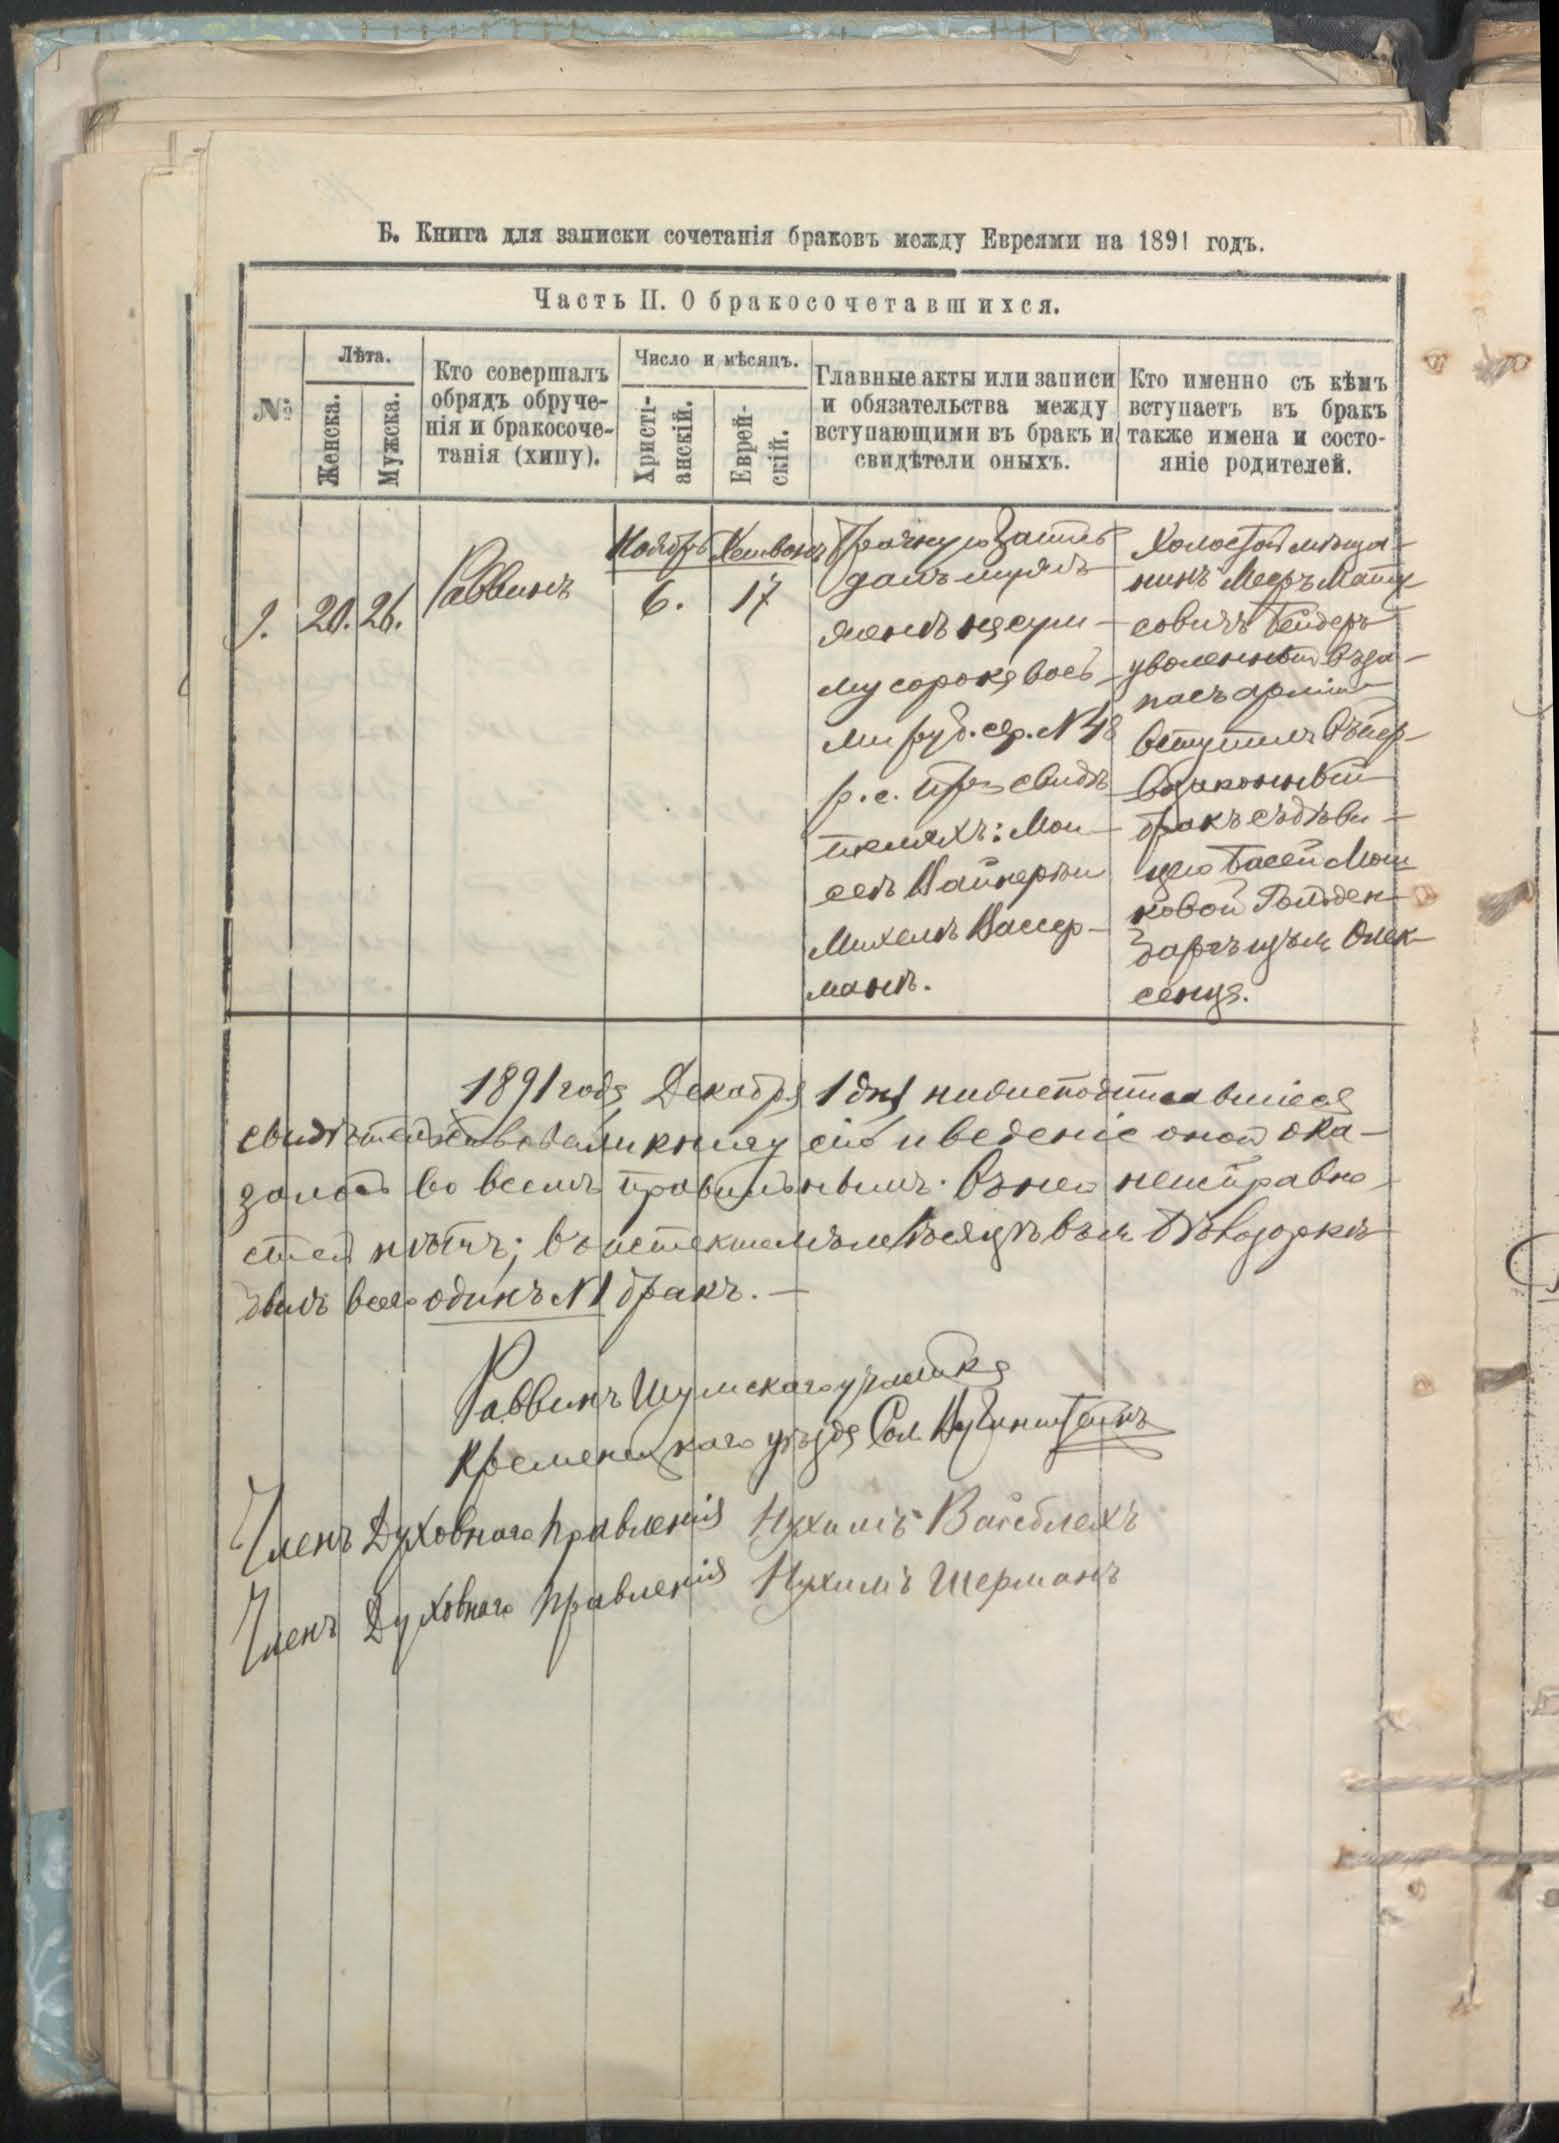 Б. Книга для записки сочетанія браковъ между Евреями на 1891 годъ.
Часть II. О бракосочетавшихся.
№
Лѣта.
Женска.
Мужска.
Кто совершалъ
обрядъ обруче-
нія и бракосоче-
танія (хипу).
Число и мѣсяцъ.
Христі-
анскій.
Еврей-
скій.
Главные акты или записи
и обязательства между
вступающими въ бракъ и
свидѣтели оныхъ.
Кто именно съ кѣмъ
вступаетъ въ бракъ
также имена и состо-
яніе родителей.
1.
20.
26.
Раввинъ
Ноябрь
6.
Хешванъ
17
Брачную запись
далъ мужъ
женѣ на сум-
му сорокъ восѣ-
ми руб. сер. № 48
р. с. При свидѣ-
теляхъ: Мои-
сей Вайнеръ и
Михель Вассер-
манъ.
Холостой мѣща-
нинъ Мееръ Мату
совичъ Бейдеръ
уволенный въ за-
пасъ арміи
вступилъ въ пер-
вый законный
бракъ съ дѣви-
цею Басей Мош
ковой Гольден-
бергъ изъ м. Олек-
сенца.
1891 года Декабря 1 дня нижеподписавшіеся
свидѣтельствовали книгу сію и веденіе оной ока-
залось во всемъ правильнымъ. Въ ней неисправно-
стей нѣтъ; въ истекшемъ мѣсяцѣ въ м.
былъ всего одинъ № 1 бракъ. —
Раввинъ Шумскаго участка
Кременецкаго уѣзда Сол.
Членъ Духовнаго Правленія Нухимъ Вайсблехъ
Членъ Духовнаго Правленія Нухимъ Шерманъ